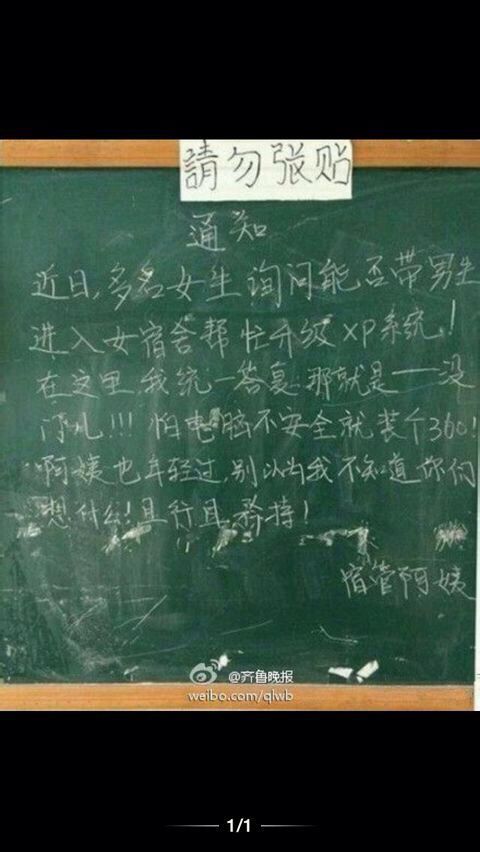 請勿张贴
通知
近日,多名女生询问能否带男生
进入女宿舍帮忙升级XP系统!
在这里,我统一答复,那就是——没
门儿!!!怕电脑不安全就装个360!
啊姨也年轻过,别以为我不知道你们
想什么!且行且矜持!
宿管阿姨
@齐鲁晚报
weibo.com/qlwb
1/1